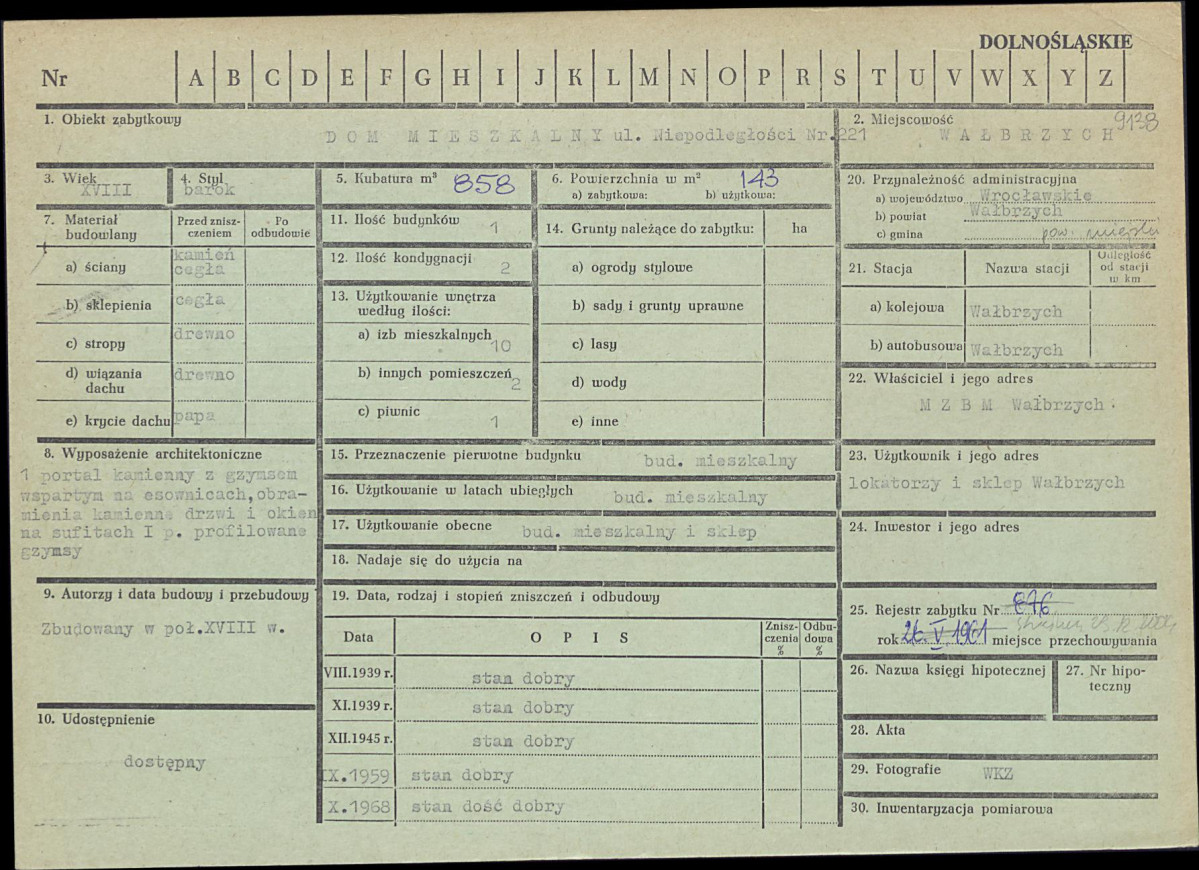 DOLNOŚLĄSKIE
Nr A B C D E F G H I J K L M N O P R S T U V W X Y Z
1. Obiekt zabytkowy
DOM MIESZKALNY ul. Niepodległości Nr.221
2. Miejscowość
9128
WAŁBRZYCH
3. Wiek
XVIII
4. Styl
barok
5. Kubatura m³ 858
6. Powierzchnia w m² 143
a) zabytkowa: b) użytkowa:
20. Przynależność administracyjna
a) województwo Wrocławskie
b) powiat Wałbrzych
c) gmina pow. miejski
7. Materiał budowlany
Przed zniszczeniem
Po odbudowie
a) ściany kamień
cegła
b) sklepienia cegła
c) stropy drewno
d) wiązania dachu drewno
e) krycie dachu papa
11. Ilość budynków 1
12. Ilość kondygnacji 2
13. Użytkowanie wnętrza
według ilości:
a) izb mieszkalnych 10
b) innych pomieszczeń 2
c) piwnic 1
14. Grunty należące do zabytku: ha
a) ogrody stylowe
b) sady i grunty uprawne
c) lasy
d) wody
e) inne
21. Stacja Nazwa stacji
Odległość
od stacji
w km
a) kolejowa Wałbrzych
b) autobusowa Wałbrzych
22. Właściciel i jego adres
M Z B M Wałbrzych.
8. Wyposażenie architektoniczne
1 portal kamienny z gzymsem
wspartym na esownicach,obra-
mienia kamienne drzwi i okien
na sufitach I p. profilowane
gzymsy
15. Przeznaczenie pierwotne budynku bud. mieszkalny
16. Użytkowanie w latach ubiegłych bud. mieszkalny
17. Użytkowanie obecne bud. mieszkalny i sklep
18. Nadaje się do użycia na
23. Użytkownik i jego adres
lokatorzy i sklep Wałbrzych
24. Inwestor i jego adres
9. Autorzy i data budowy i przebudowy
Zbudowany w poł.XVIII w.
10. Udostępnienie
dostępny
19. Data, rodzaj i stopień zniszczeń i odbudowy
Data OPIS
Znisz-
czenia
%
Odbu-
dowa
%
VIII.1939 r. stan dobry
XI.1939 r. stan dobry
XII.1945 r. stan dobry
IX.1959 stan dobry
X.1968 stan dość dobry
25. Rejestr zabytku Nr 876
rok 26.V.1961 miejsce przechowywania
26. Nazwa księgi hipotecznej
27. Nr hipo-
teczny
28. Akta
29. Fotografie WKZ
30. Inwentaryzacja pomiarowa